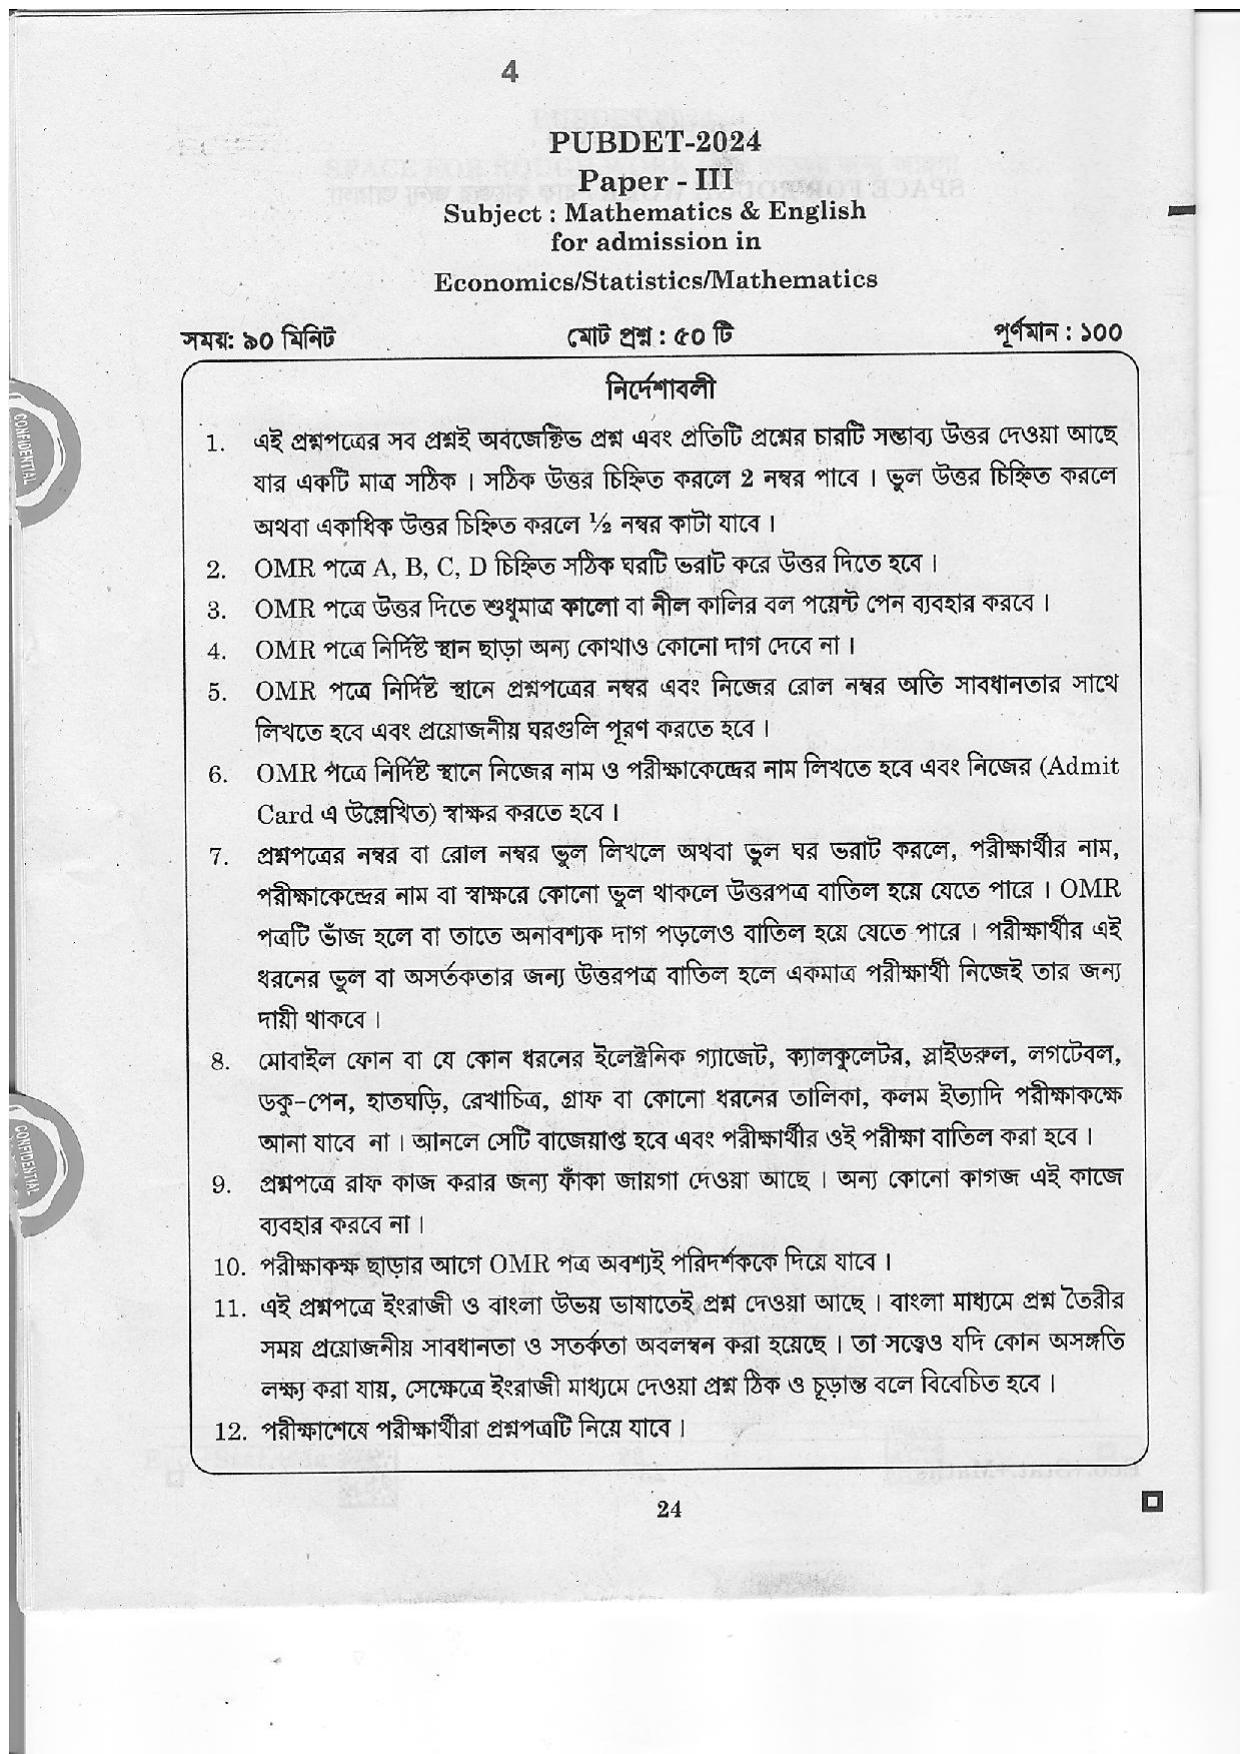 4
PUBDET-2024
Paper - III
Subject : Mathematics & English
for admission in
Economics/Statistics/Mathematics
সময়: ৯০ মিনিট মোট প্রশ্ন : ৫০ টি পূর্ণমান : ১০০
নির্দেশাবলী
1. এই প্রশ্নপত্রের সব প্রশ্নই অবজেক্টিভ প্রশ্ন এবং প্রতিটি প্রশ্নের চারটি সম্ভাব্য উত্তর দেওয়া আছে
যার একটি মাত্র সঠিক । সঠিক উত্তর চিহ্নিত করলে 2 নম্বর পাবে । ভুল উত্তর চিহ্নিত করলে
অথবা একাধিক উত্তর চিহ্নিত করলে ½ নম্বর কাটা যাবে ।
2. OMR পত্রে A, B, C, D চিহ্নিত সঠিক ঘরটি ভরাট করে উত্তর দিতে হবে ।
3. OMR পত্রে উত্তর দিতে শুধুমাত্র কালো বা নীল কালির বল পয়েন্ট পেন ব্যবহার করবে ।
4. OMR পত্রে নির্দিষ্ট স্থান ছাড়া অন্য কোথাও কোনো দাগ দেবে না ।
5. OMR পত্রে নির্দিষ্ট স্থানে প্রশ্নপত্রের নম্বর এবং নিজের রোল নম্বর অতি সাবধানতার সাথে
লিখতে হবে এবং প্রয়োজনীয় ঘরগুলি পূরণ করতে হবে ।
6. OMR পত্রে নির্দিষ্ট স্থানে নিজের নাম ও পরীক্ষাকেন্দ্রের নাম লিখতে হবে এবং নিজের (Admit
Card এ উল্লেখিত) স্বাক্ষর করতে হবে ।
7. প্রশ্নপত্রের নম্বর বা রোল নম্বর ভুল লিখলে অথবা ভুল ঘর ভরাট করলে, পরীক্ষার্থীর নাম,
পরীক্ষাকেন্দ্রের নাম বা স্বাক্ষরে কোনো ভুল থাকলে উত্তরপত্র বাতিল হয়ে যেতে পারে । OMR
পত্রটি ভাঁজ হলে বা তাতে অনাবশ্যক দাগ পড়লেও বাতিল হয়ে যেতে পারে । পরীক্ষার্থীর এই
ধরনের ভুল বা অসর্তকতার জন্য উত্তরপত্র বাতিল হলে একমাত্র পরীক্ষার্থী নিজেই তার জন্য
দায়ী থাকবে ।
8. মোবাইল ফোন বা যে কোন ধরনের ইলেক্ট্রনিক গ্যাজেট, ক্যালকুলেটর, স্লাইডরুল, লগটেবল,
ডকু-পেন, হাতঘড়ি, রেখাচিত্র, গ্রাফ বা কোনো ধরনের তালিকা, কলম ইত্যাদি পরীক্ষাকক্ষে
আনা যাবে না । আনলে সেটি বাজেয়াপ্ত হবে এবং পরীক্ষার্থীর ওই পরীক্ষা বাতিল করা হবে ।
9. প্রশ্নপত্রে রাফ কাজ করার জন্য ফাঁকা জায়গা দেওয়া আছে । অন্য কোনো কাগজ এই কাজে
ব্যবহার করবে না ।
10. পরীক্ষাকক্ষ ছাড়ার আগে OMR পত্র অবশ্যই পরিদর্শককে দিয়ে যাবে ।
11. এই প্রশ্নপত্রে ইংরাজী ও বাংলা উভয় ভাষাতেই প্রশ্ন দেওয়া আছে । বাংলা মাধ্যমে প্রশ্ন তৈরীর
সময় প্রয়োজনীয় সাবধানতা ও সতর্কতা অবলম্বন করা হয়েছে । তা সত্ত্বেও যদি কোন অসঙ্গতি
লক্ষ্য করা যায়, সেক্ষেত্রে ইংরাজী মাধ্যমে দেওয়া প্রশ্ন ঠিক ও চূড়ান্ত বলে বিবেচিত হবে ।
12. পরীক্ষাশেষে পরীক্ষার্থীরা প্রশ্নপত্রটি নিয়ে যাবে ।
24
CONFIDENTIAL
CONFIDENTIAL